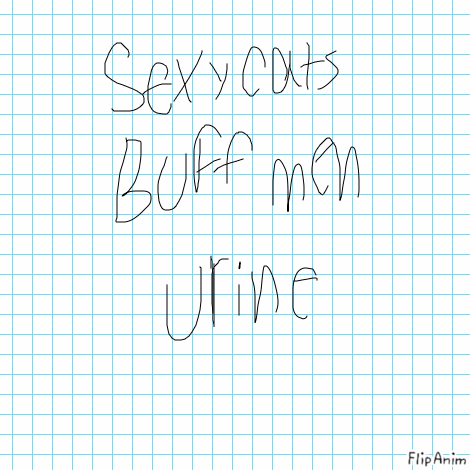 Sexy cats
Buff man
urine
FlipAnim